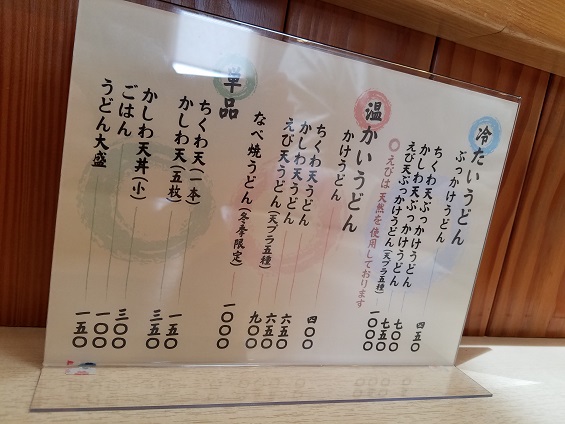 冷たいうどん
ぶっかけうどん 四五〇
ちくわ天ぶっかけうどん 七〇〇
かしわ天ぶっかけうどん 七五〇
えび天ぶっかけうどん(天プラ五種) 一〇〇〇
◎えびは天然を使用しております
温かいうどん
かけうどん 四〇〇
ちくわ天うどん 六五〇
かしわ天うどん 六五〇
えび天うどん(天プラ五種) 九〇〇
なべ焼うどん(冬季限定) 一〇〇〇
単品
ちくわ天(一本) 一五〇
かしわ天(五枚) 三五〇
かしわ天丼(小) 三〇〇
ごはん 一〇〇
うどん大盛 一五〇